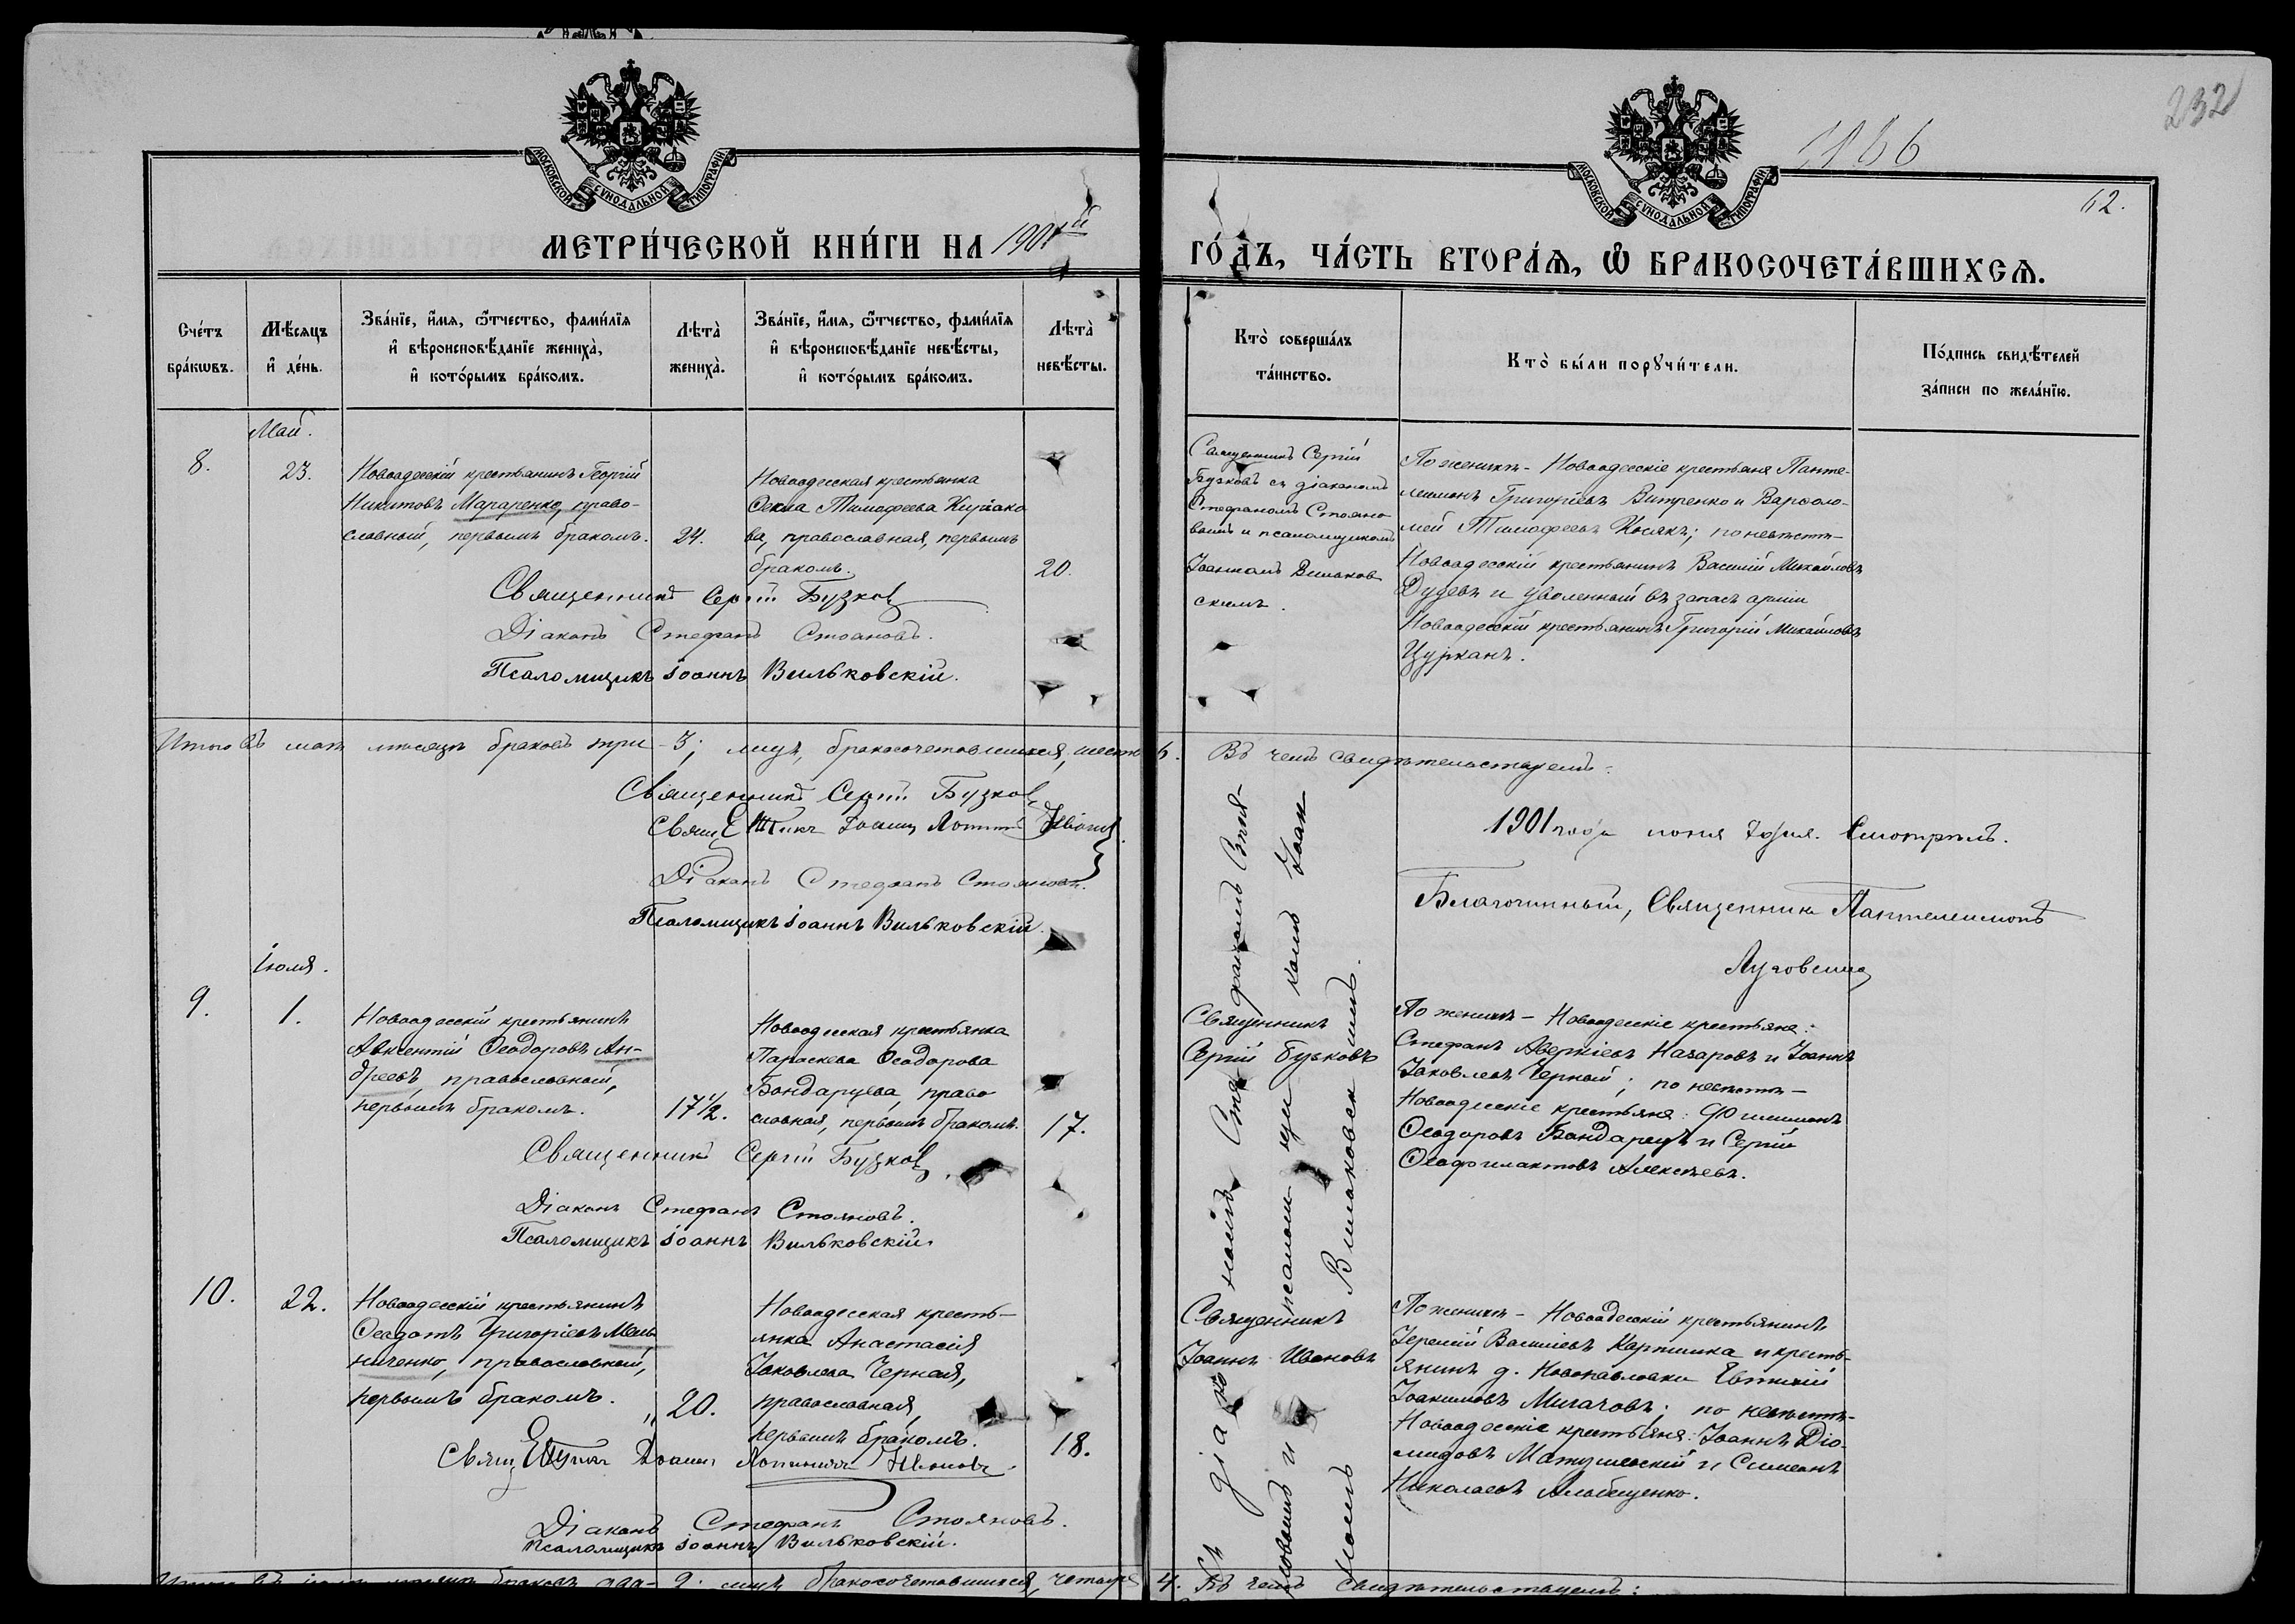 232
1166
62.
МОСКОВСКОЙ СѴНОДАЛЬНОЙ ТИПОГРАФІИ
МОСКОВСКОЙ СѴНОДАЛЬНОЙ ТИПОГРАФІИ
МЕТРИ́ЧЕСКОЙ КНИ́ГИ НА 1901й
ГО́ДЪ, ЧА́СТЬ ВТОРА́Ѧ, Ѽ БРАКОСОЧЕТА́ВШИХСѦ.
Сче́тъ бра́кѡвъ.
Мѣ́сяцъ и҆ де́нь.
Зва́нїе, и҆́мя, ѻ҆́тчество, фами́лїя и҆ вѣроисповѣ́данїе жениха̀, и҆ кото́рымъ бра́комъ.
Лѣта̀ жениха̀.
Зва́нїе, и҆́мя, ѻ҆́тчество, фами́лїя и҆ вѣроисповѣ́данїе невѣ́сты, и҆ кото́рымъ бра́комъ.
Лѣта̀ невѣ́сты.
Кто̀ соверша́лъ та́инство.
Кто̀ бы́ли порꙋчи́тели.
По́дпись свидѣ́телей за́писи по жела́нїю.
Май.
8.
23.
Новоодесскій крестьянинъ Георгій
Никитовъ Мараренко, право-
славный, первымъ бракомъ.
24.
Новоодесская крестьянка
Ѳекла Тимофеева Кирiако
ва, православная, первымъ
бракомъ.
20.
Священникъ Сергій
Бузковъ съ діакономъ
Стефаномъ Стояно
вымъ и псаломщикомъ
Іоанномъ Вильков
скимъ.
По женихѣ - Новоодесскіе крестьяне Панте-
леимонъ Григоріевъ Витренко и Варѳоло-
мей Тимофеевъ Косякъ; по невѣстѣ -
Новоодесскій крестьянинъ Василій Михайловъ
Дудевъ и уволенный въ запасъ арміи
Новоодесскій крестьянинъ Григорій Михайловъ
Цурканъ.
Священникъ Сергій Бузков
Діаконъ Стефанъ Стояновъ.
Псаломщикъ Іоаннъ Вильковскій.
Итого въ маѣ мѣсяцѣ браковъ три - 3; лицъ, бракосочетавшихся, шесть 6. Въ чемъ свидѣтельствуемъ:
Священникъ Сергій Бузков
Священникъ Іоаннъ Ивановъ
Діаконъ Стефанъ Стояновъ.
Псаломщикъ Іоаннъ Вильковскій.
1901 года іюня дня. Смотрѣлъ.
Благочинный, Священникъ Пантелеимонъ
Іюля.
9.
1.
Новоодесскій крестьянинъ
Авксентій Ѳеодоровъ Ан-
дреевъ, православный,
первымъ бракомъ.
17 1/2.
Новоодесская крестьянка
Параскева Ѳеодорова
Бондарцева, право
славная, первымъ бракомъ.
17.
Священникъ
Сергій Бузковъ
По женихѣ - Новоодесскіе крестьяне:
Стефанъ Аверкіевъ Назаровъ и Іоаннъ
Іаковлевъ Черный; по невѣстѣ -
Новоодесскіе крестьяне: Филимонъ
Ѳеодоровъ Бондарецъ и Сергій
Ѳеофилактовъ Алексѣевъ.
Священникъ Сергій Бузков
Діаконъ Стефанъ Стояновъ.
Псаломщикъ Іоаннъ Вильковскій.
10.
22.
Новоодесскій крестьянинъ
Ѳеодотъ Григоріевъ Мель
ниченко, православный,
первымъ бракомъ.
20.
Новоодесская кресть-
янка Анастасія
Іаковлева Черная,
православная,
первымъ бракомъ.
18.
Священникъ
Іоаннъ Ивановъ
По женихѣ - Новоодесскій крестьянинъ
Іеремій Василіевъ Картика и кресть-
янинъ д. Новопавловки Евтихій
Іоакимовъ Мигачовъ; по невѣстѣ -
Новоодесскіе крестьяне: Іоаннъ Діо-
мидовъ Матушевскій и Симеонъ
Николаевъ Альбещенко.
Священникъ Іоаннъ Ивановъ
Діаконъ Стефанъ Стояновъ.
Псаломщикъ Іоаннъ Вильковскій.
Съ діакономъ Стефаномъ Стоя-
новымъ и псаломщикомъ Іоан-
номъ Вильковскимъ.
Итого въ іюлѣ мѣсяцѣ браковъ два - 2. лицъ бракосочетавшихся, четыре 4. Въ чемъ свидѣтельствуемъ: